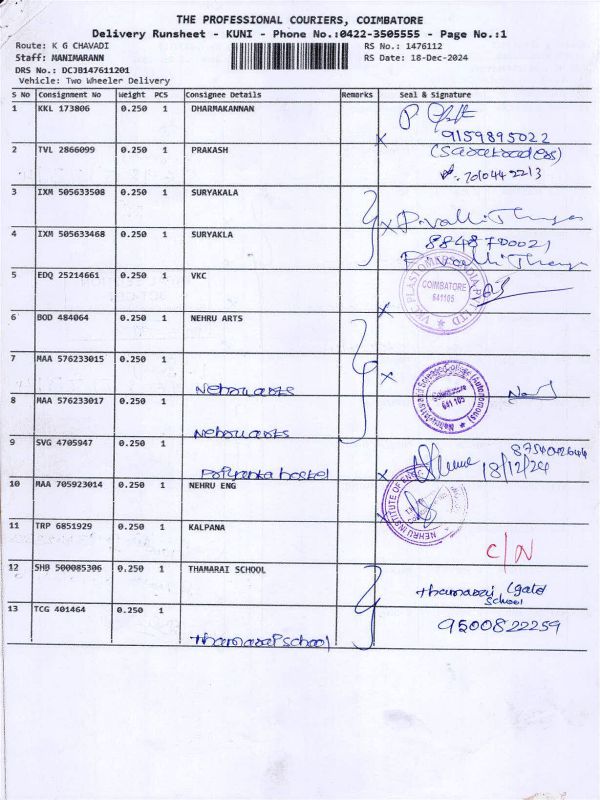 THE PROFESSIONAL COURIERS, COIMBATORE
Delivery Runsheet - KUNI - Phone No.:0422-3505555 - Page No.:1
Route: K G CHAVADI
RS No.: 1476112
Staff: MANIMARANN
RS Date: 18-Dec-2024
DRS No.: DCJB147611201
Vehicle: Two Wheeler Delivery
S No Consignment No Weight PCS Consignee Details Remarks Seal & Signature
1 KKL 173806 0.250 1 DHARMAKANNAN
9159895022
2 TVL 2866099 0.250 1 PRAKASH
3 IXM 505633508 0.250 1 SURYAKALA
4 IXM 505633468 0.250 1 SURYAKLA
8848700021
5 EDQ 25214661 0.250 1 VKC
COIMBATORE
641105
6 BOD 484064 0.250 1 NEHRU ARTS
7 MAA 576233015 0.250 1
Nehru arts
641 105
8 MAA 576233017 0.250 1
Nehru arts
9 SVG 4705947 0.250 1
18/12/24
10 MAA 705923014 0.250 1 NEHRU ENG
11 TRP 6851929 0.250 1 KALPANA
C/N
12 SHB 500085306 0.250 1 THAMARAI SCHOOL
Thamarai
School
13 TCG 401464 0.250 1
9500822259
Thamarai school